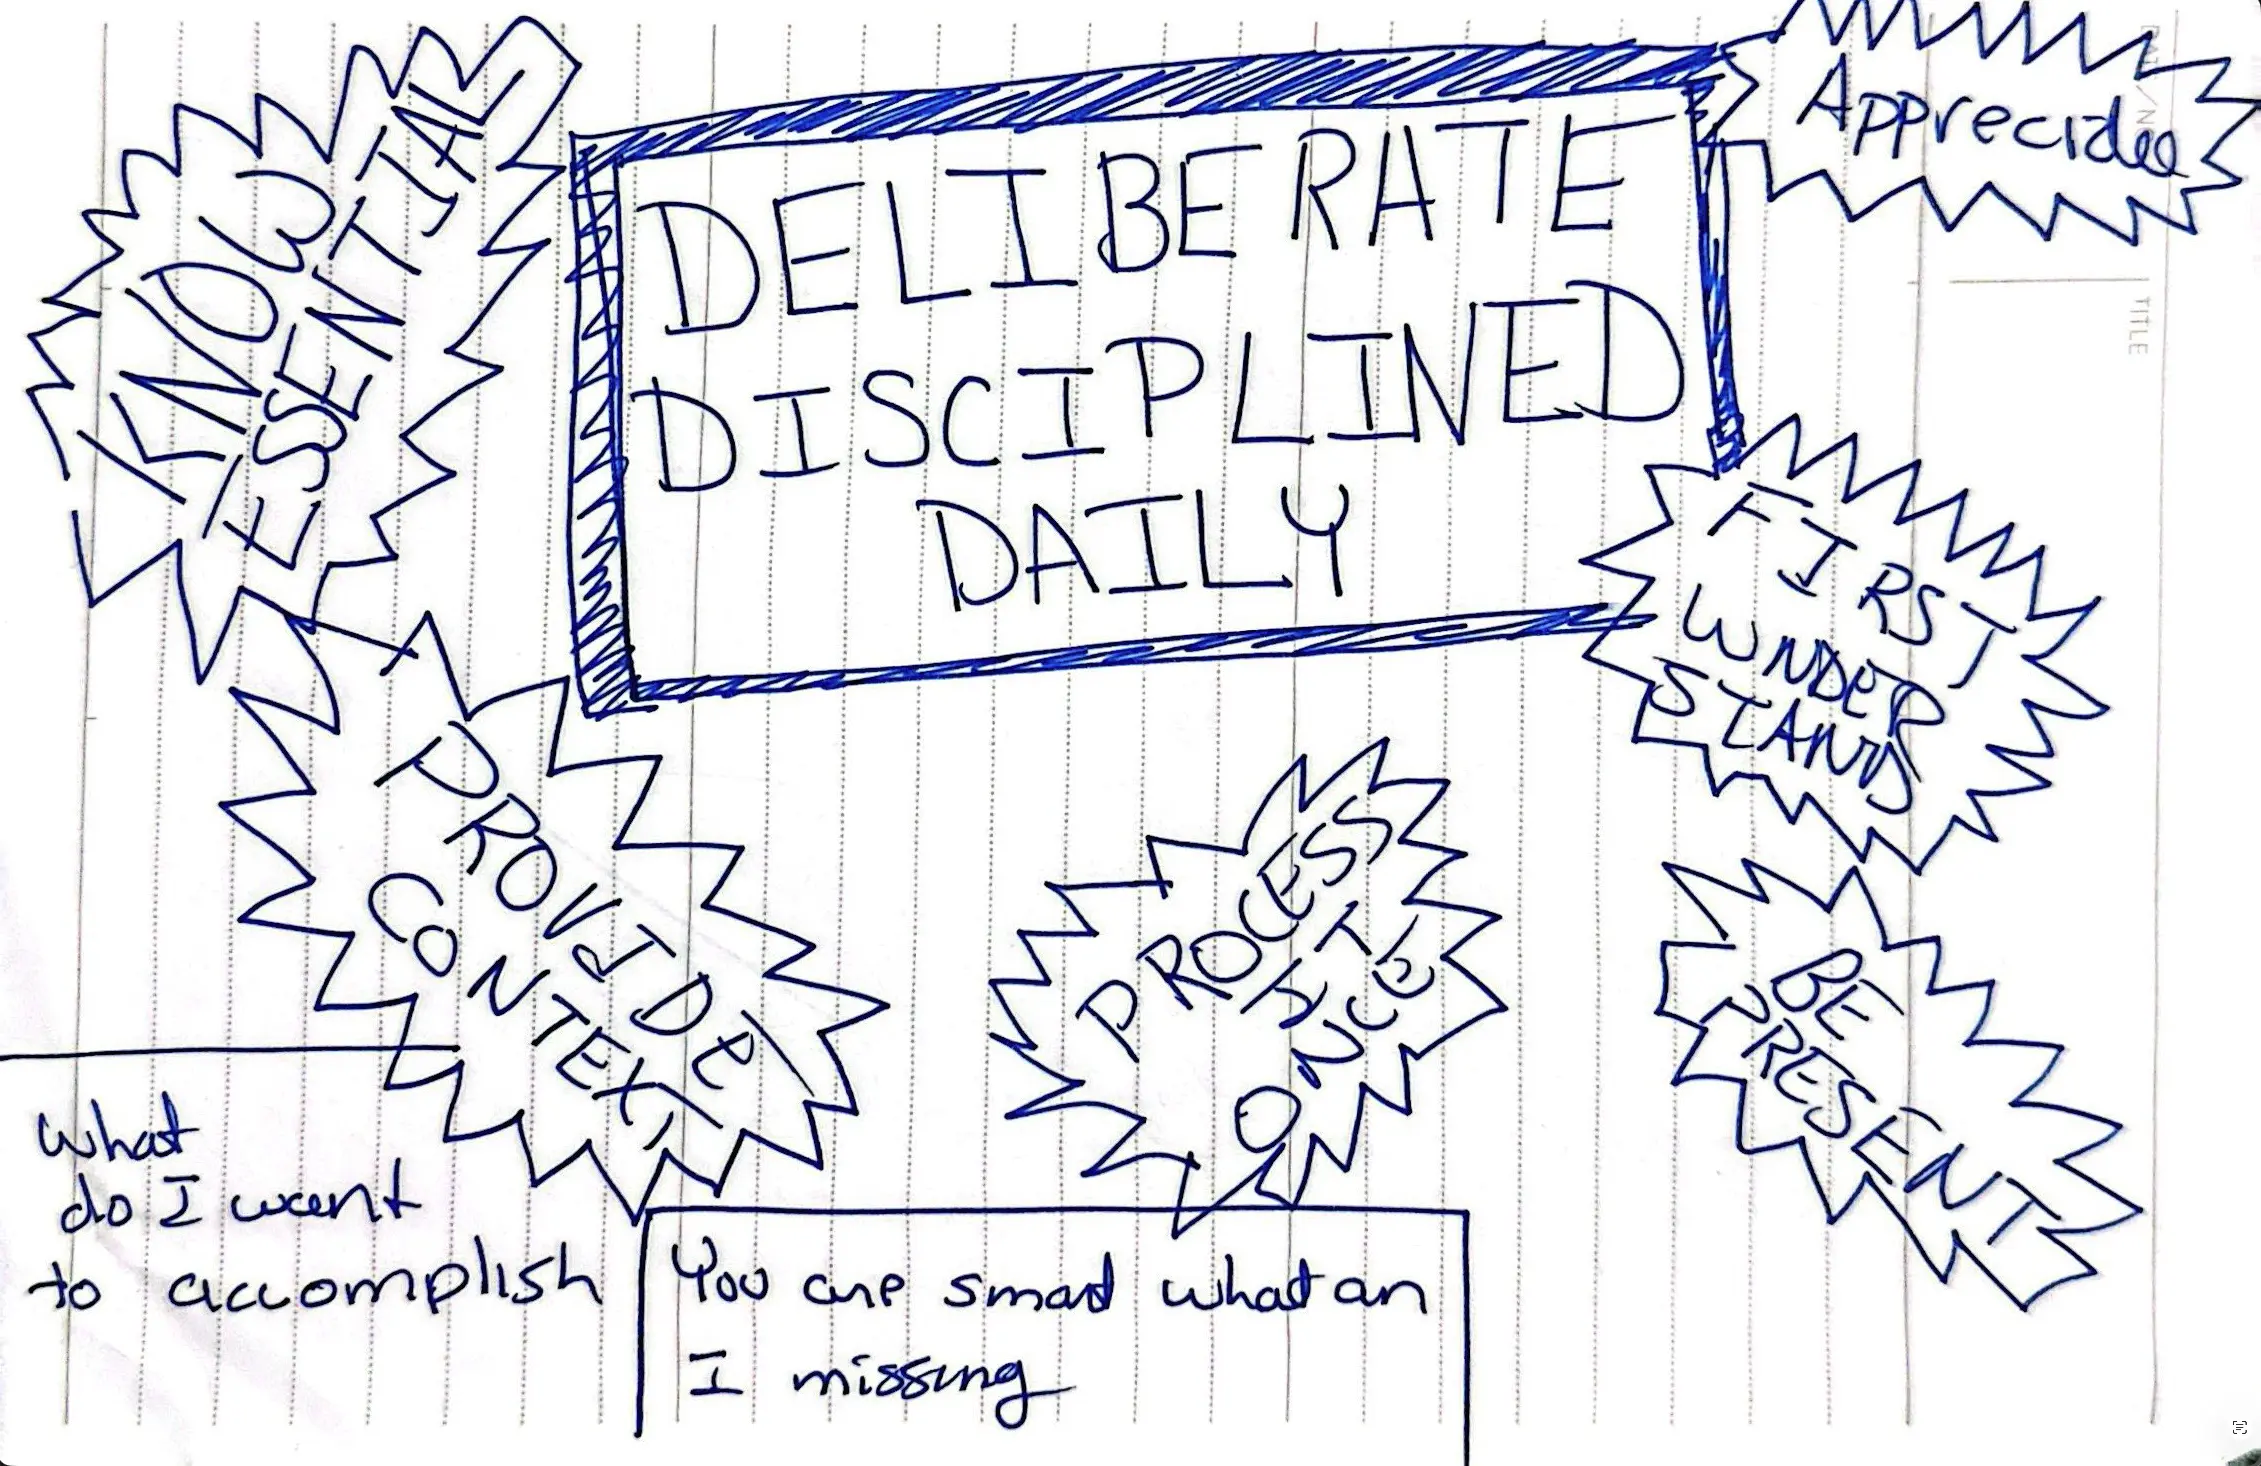 KNOW
ESSENTIAL
DELIBERATE
DISCIPLINED
DAILY
Appreciate
FIRST
UNDER
STAND
PROVIDE
CONTEXT
PROCESS
IT
ONCE
BE
PRESENT
What
do I want
to accomplish
You are smart what am
I missing
TITLE